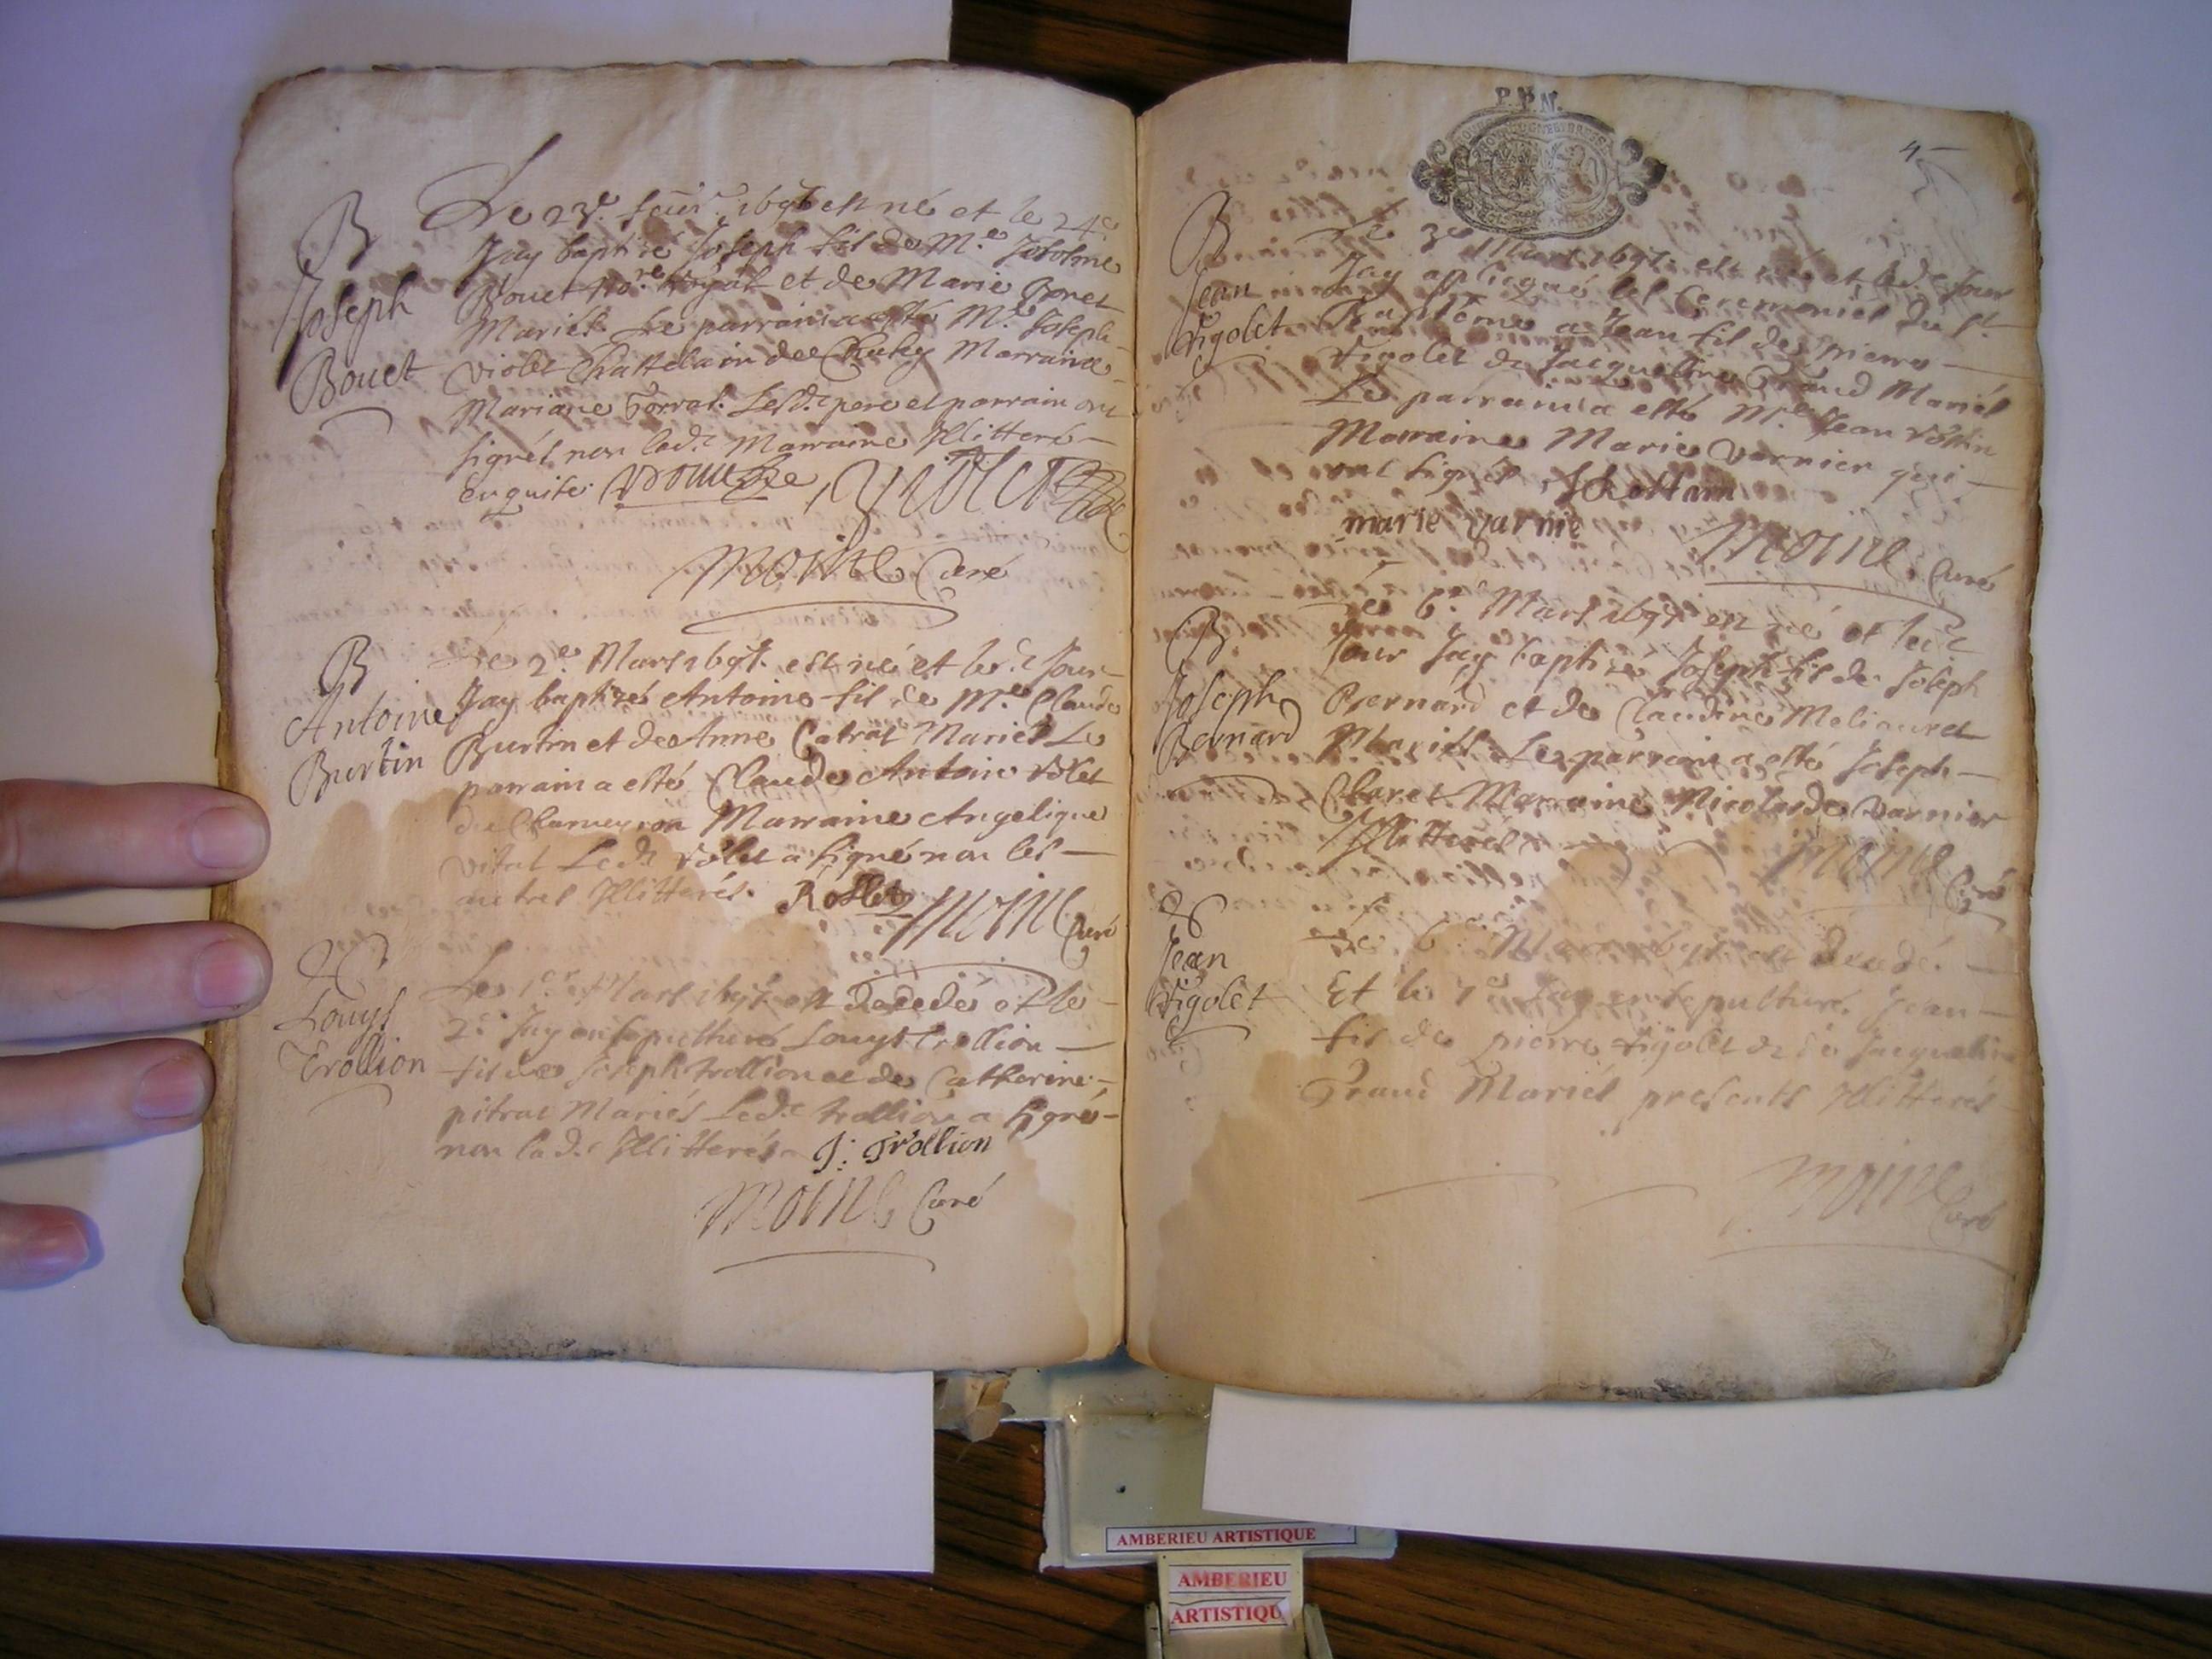 B
Joseph
Bouet
Le 23e feur. 1697 est né et le 24e
Jay baptizé Joseph fils de Me
Bouet No.re Royal et de Marie Bonet
Mariés. Le parrain a esté Me Joseph
violet Chattelain de Marraine
Mariane Ladte pere et parrain ont
signés non lad.e Marraine Illitteré
enquise. violet
Moine Curé
B
Antoine
Burtin
Le 2e Mars 1697 est né et led.t Jour
Jay baptizé Antoine fils de Me Claude
Burtin et de Anne Mariés Le
parrain a esté Claude Antoine
Marraine Angelique
vital Led.t a signé non les
autres Illitterés. Moine Curé
Louys
Trollion
Le 1er Mars 1697 est decedé et le
2e Jay ensepulthuré Louys trollion
fils de Joseph trollion et de Catherine
pitrat Mariés Led.t trollion a signé
non lad.e Illitterés J: Trollion
Moine Curé
P.P.N.
4
B
Jean
figolet
Le 3e Mars 1697 est né et led.t Jour
Jay apliqué les Ceremonies du St
Baptème a Jean fils de pierre
figolet de Jacqueline Grand Mariés
Le parrain a esté Me Jean
Marraine Marie varnier qui
ont signés
marie varnie
Moine Curé
B
Joseph
Bernard
Le 6e Mars 1697 est né et led.t
Jour Jay baptizé Joseph fils de Joseph
Bernard et de Claudine
Mariés. Le parrain a esté Joseph
Claret Marraine Nicolarde varnier
Illitterés
Moine Curé
Jean
figolet
Le 6e Mars 1697 est decedé
Et le 7e Jay ensepulturé Jean
fils de pierre figolet de Jacqueline
Grand Mariés presents Illitterés
Moine Curé
AMBERIEU ARTISTIQUE
AMBERIEU
ARTISTIQU